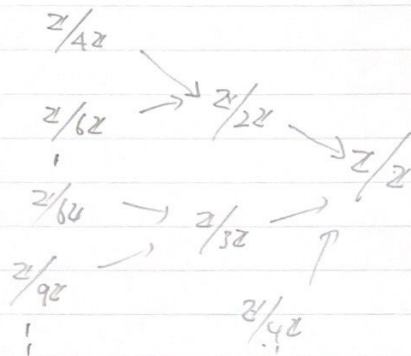 Z/4Z
Z/6Z
Z/2Z
Z/Z
Z/6Z
Z/3Z
Z/9Z
Z/4Z